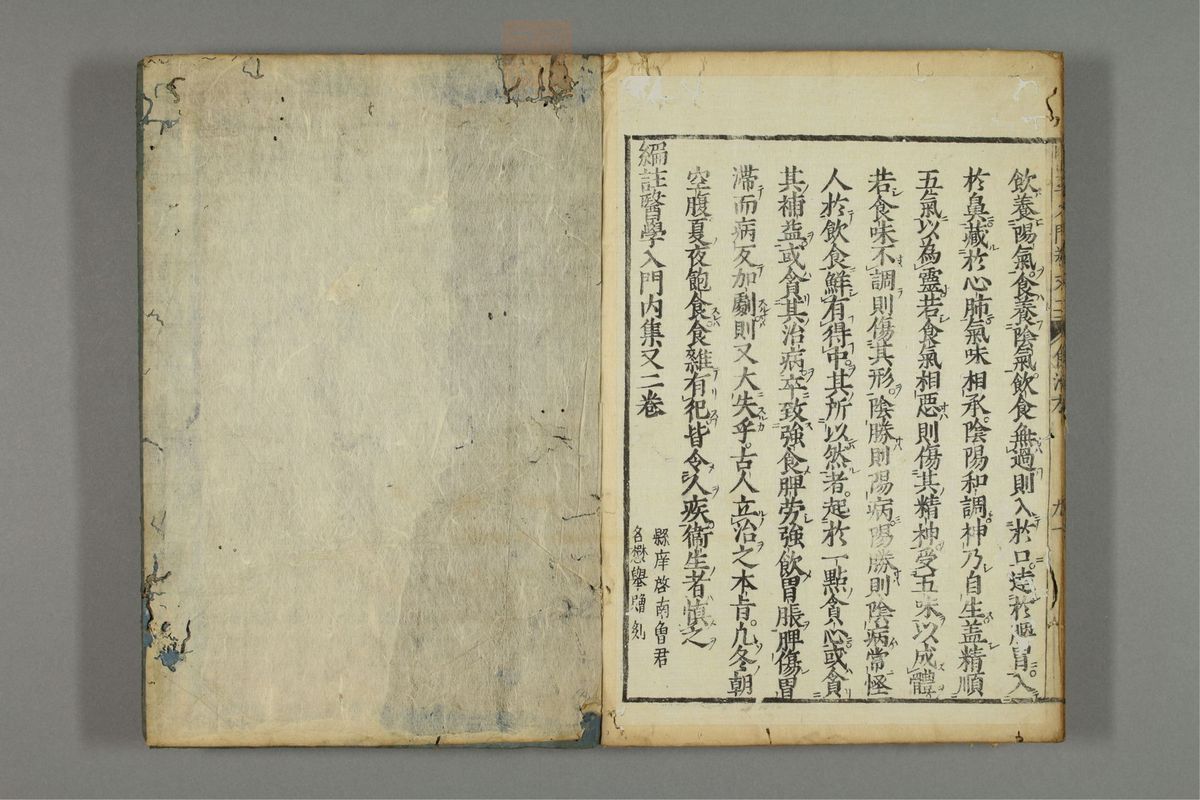 飲養陽氣食養陰氣飲食無過則入於口達於脾胃入
於鼻藏於心肺氣味相承陰陽和調神乃自生盖精順
五氣以為靈若食氣相惡則傷其精神受五味以成體
若食味不調則傷其形陰勝則陽病陽勝則陰病常怪
人於飲食鮮有得中其所以然者起於一點貪心或貪
其補益或貪其治病卒致強食脾劳強飲胃脹脾傷胃
滯而病反加劇則又大失乎古人立治之本旨凡冬朝
空腹夏夜飽食食雜有犯皆令人疾衞生者慎之
縣庠啓南魯君
名懋舉贈刻
編註醫學入門内集又二卷